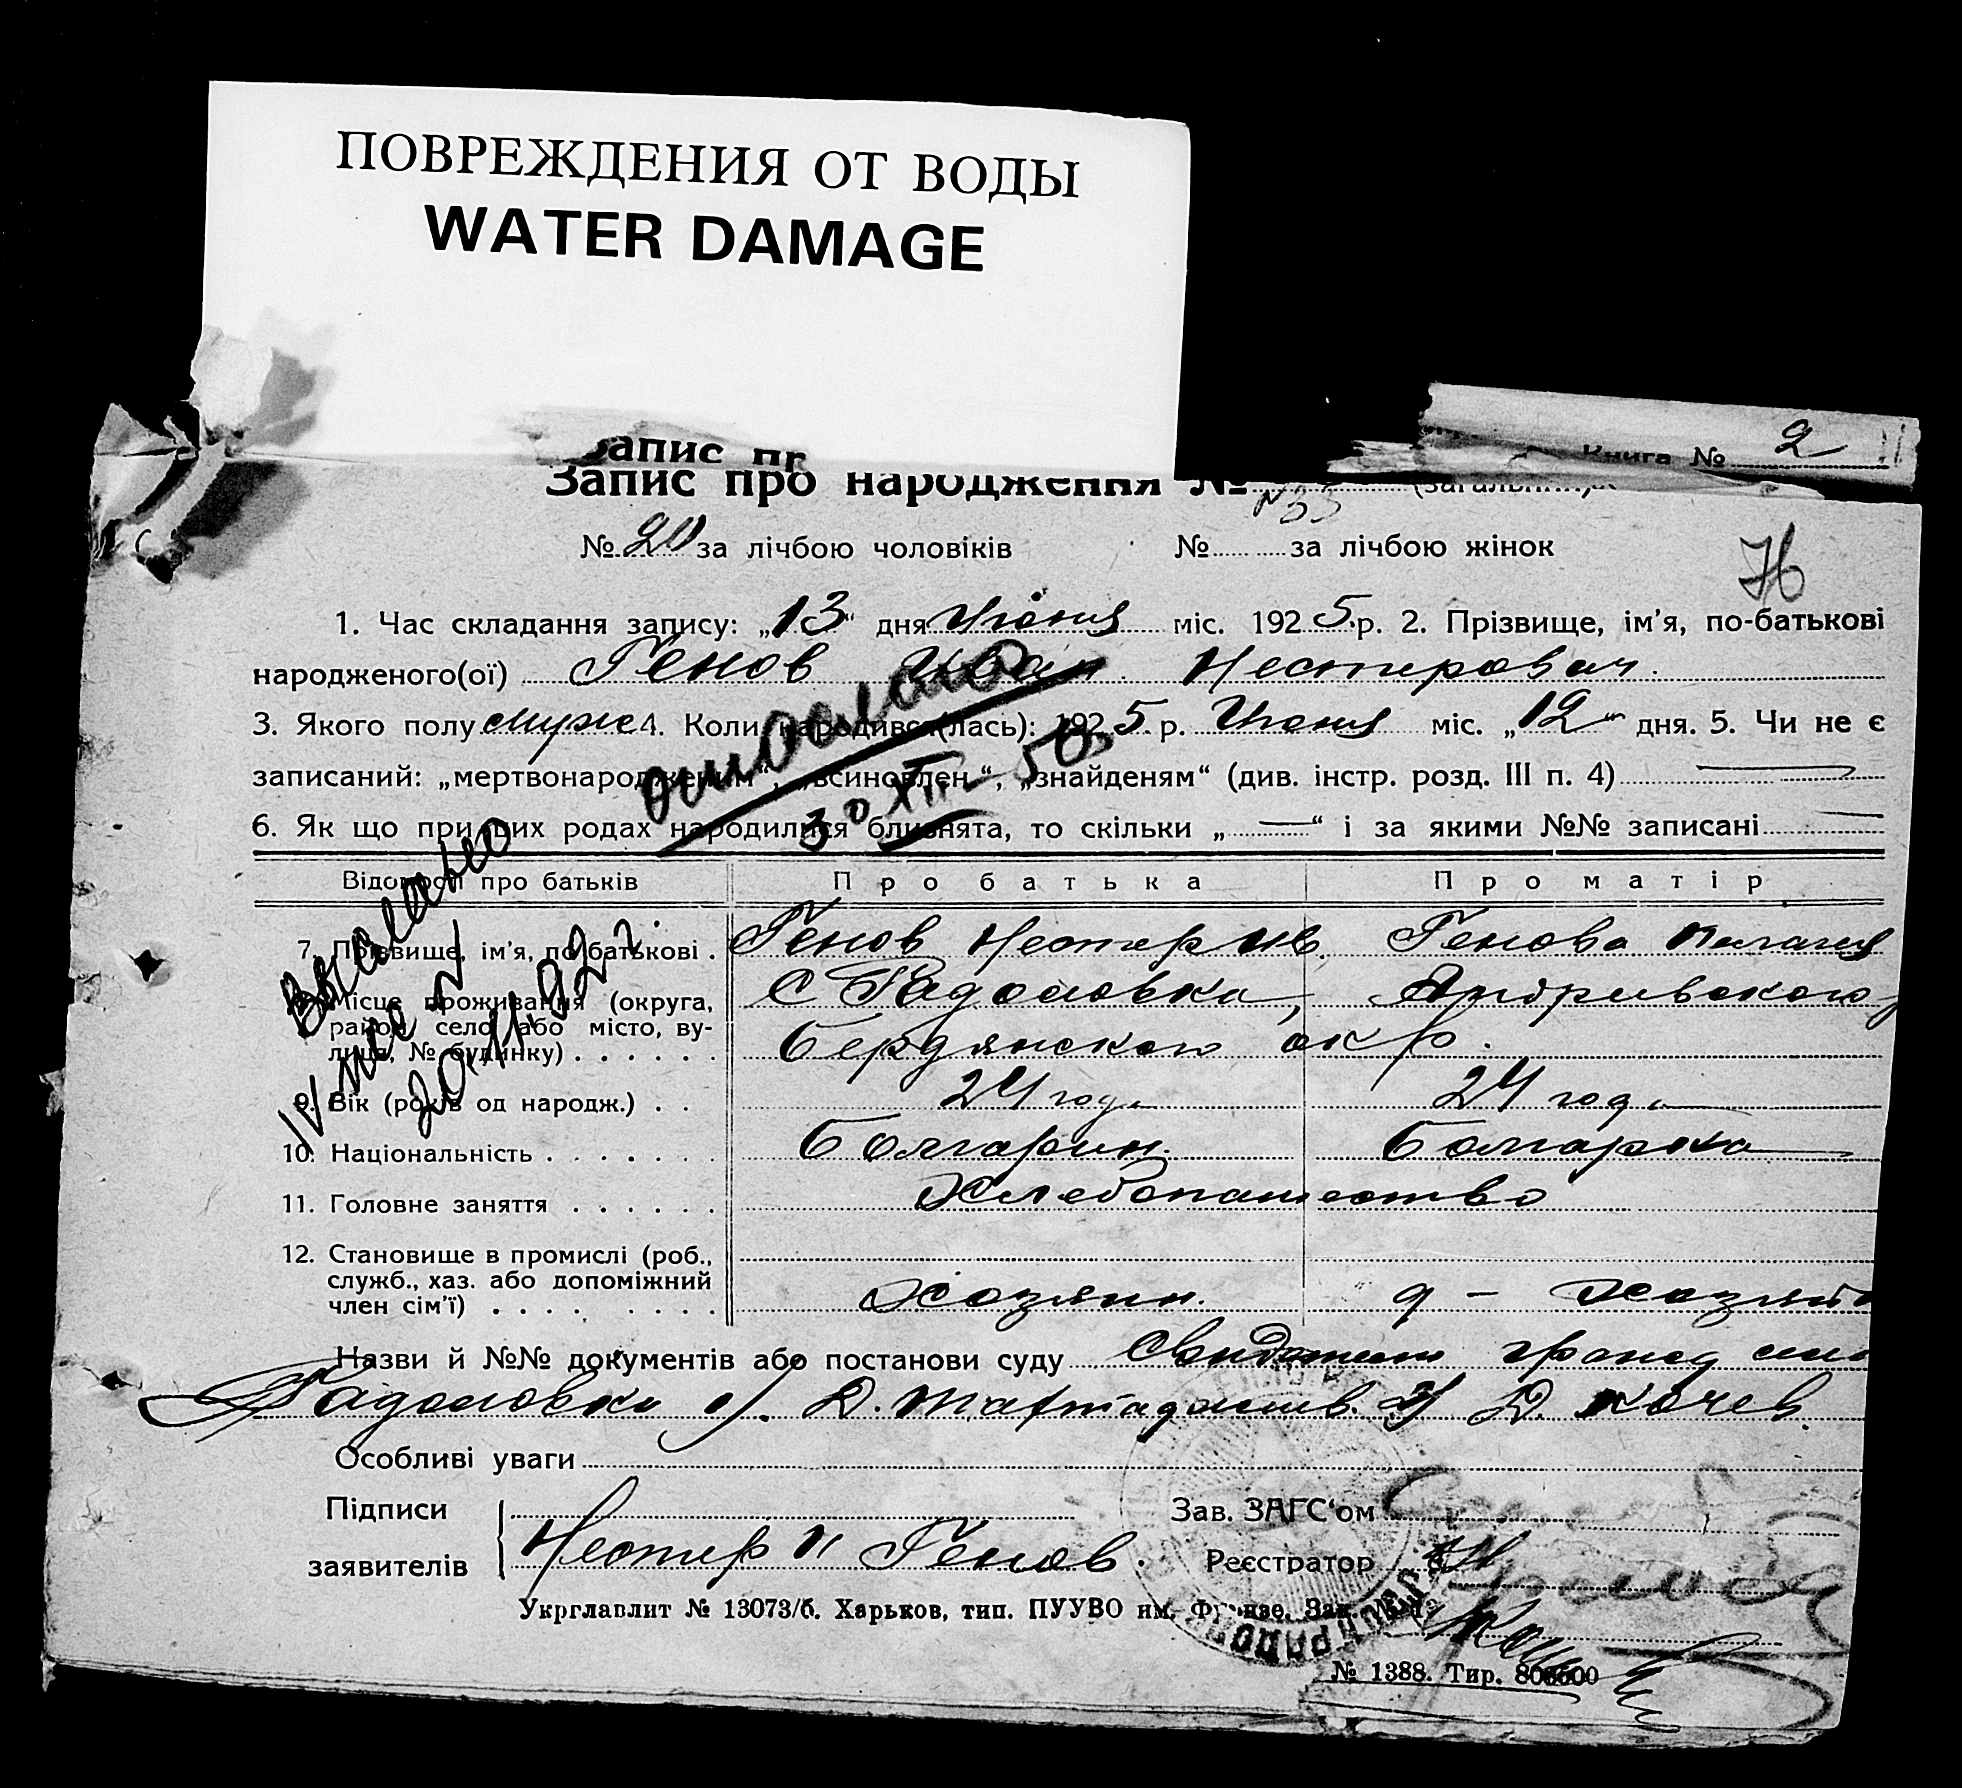 ПОВРЕЖДЕНИЯ ОТ ВОДЫ
WATER DAMAGE
Книга № 2
Запис пр
Запис про народження №
№ 20 за лічбою чоловіків № за лічбою жінок
76
1. Час складання запису: „13“ дня Июня міс. 1925 р. 2. Прізвище, ім'я, по-батькові
народженого(ої) Генов Иван Нестерович.
3. Якого полу муж 4. Коли народився(лась): 1925 р. Июня міс. „12“ дня. 5. Чи не є
записаний: „мертвонародженим“, „всиновлен.“, „знайденям“ (див. інстр. розд. III п. 4)
6. Як що при цих родах народилися близнята, то скільки „—“ і за якими №№ записані
отослано
30 XII 50
Відомості про батьків Про батька Про матір
7. Прізвище, ім'я, по-батькові . Генов Нестер Ив. Генова Пелагия
Місце проживання (округа, район, село або місто, вулиця, № будинку) . . . . . . С Радоловка,
Бердянского окр.
9. Вік (років од народж.) . . 24 год. 24 год.
10. Національність . . . . . . . Болгарин. Болгарка
11. Головне заняття . . . . . . Хлебопашество
12. Становище в промислі (роб.,
служб., хаз. або допоміжний
член сім'ї) . . . . . . . . Хозяин. д - хозяй
Выслано
20.11.92 г.
Назви й №№ документів або постанови суду
Радоловки Д. Д. Кочев.
Особливі уваги
Підписи Зав. ЗАГС'ом
заявителів Нестер И Генов. Реєстратор
Укрглавлит № 13073/б. Харьков, тип. ПУУВО им. Фрунзе. Зак.
№ 1388. Тир.